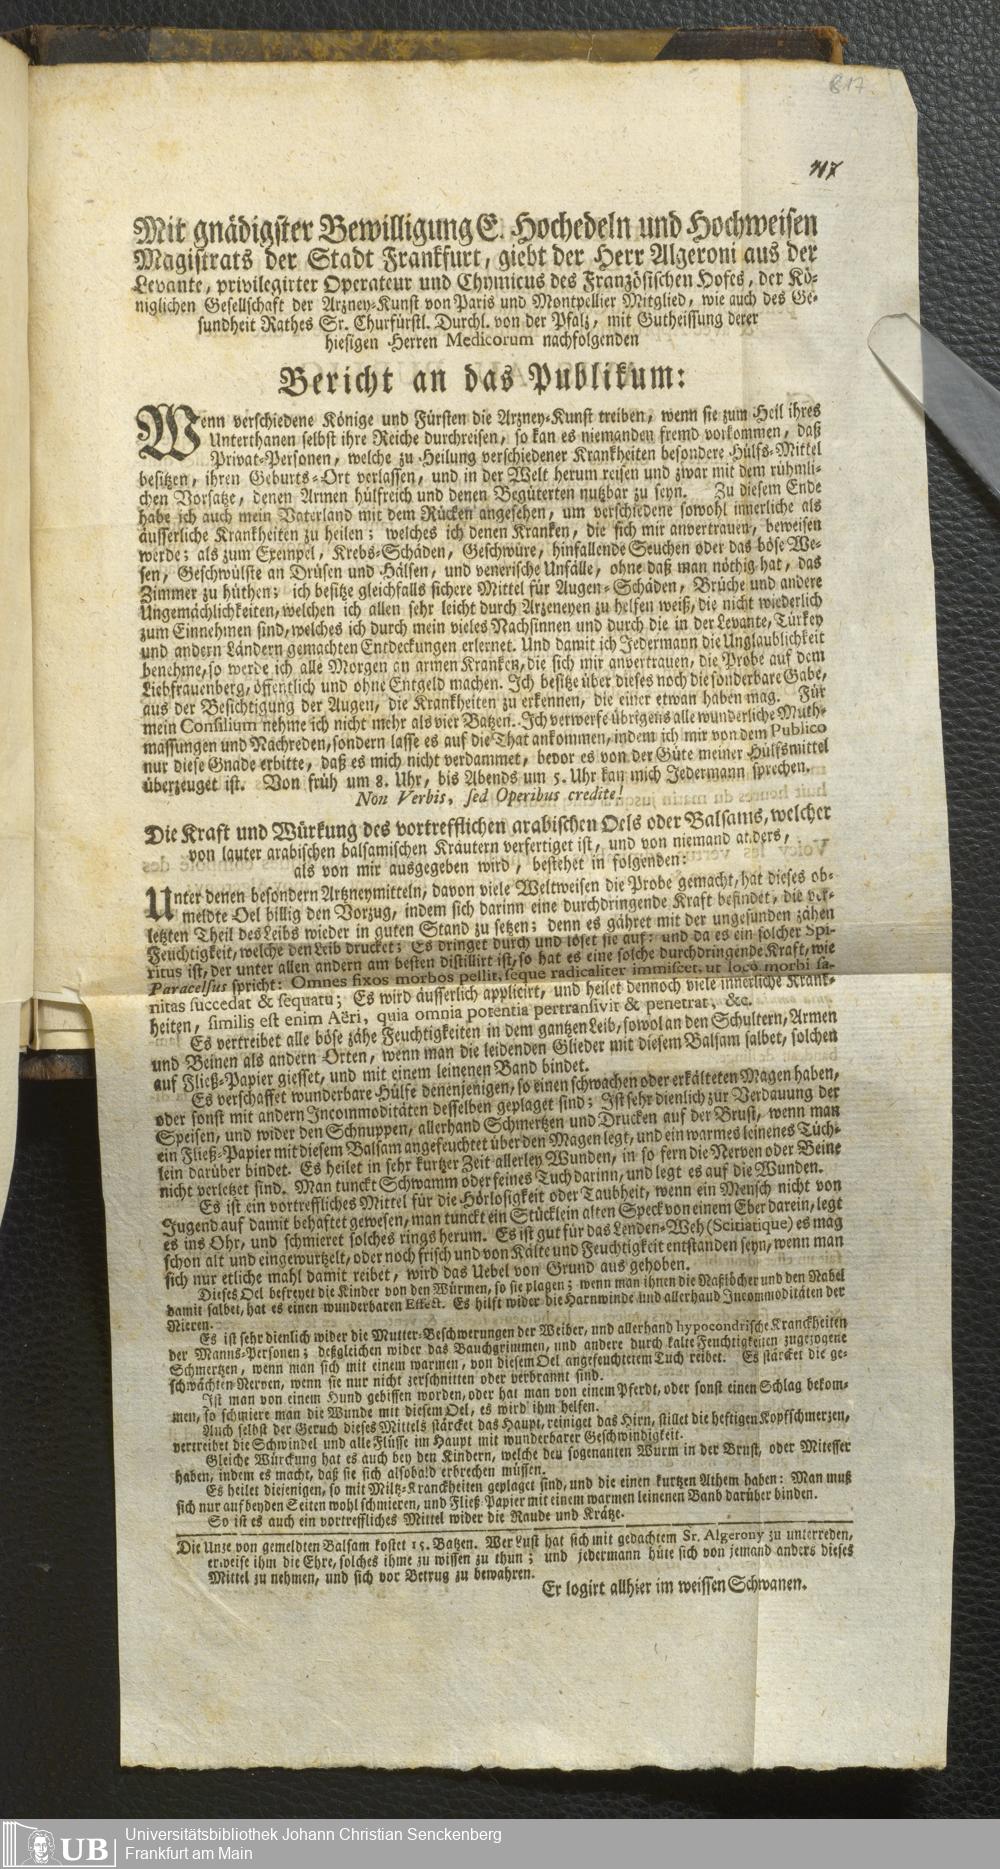 817
717
Mit gnädigster Bewilligung E. Hochedeln und Hochweisen
Magistrats der Stadt Franckfurt, giebt der Herr Algeroni aus der
Levante, privilegirter Operateur und Chymicus des Französischen Hofes, der Kö-
niglichen Gesellschaft der Arzney-Kunst von Paris und Montpellier Mitglied, wie auch des Ge-
sundheit Rathes Sr. Churfürstl. Durchl. von der Pfalz, mit Gutheissung derer
hiesigen Herren Medicorum nachfolgenden
Bericht an das Publikum:
Wenn verschiedene Könige und Fürsten die Arzney-Kunst treiben, wenn sie zum Heil ihres
Unterthanen selbst ihre Reiche durchreisen, so kan es niemanden fremd vorkommen, daß
Privat-Personen, welche zu Heilung verschiedener Krankheiten besondere Hülfs-Mittel
besitzen, ihren Geburts-Ort verlassen, und in der Welt herum reisen und zwar mit dem rühmli-
chen Vorsatze, denen Armen hülfreich und denen Begüterten nutzbar zu seyn. Zu diesem Ende
habe ich auch mein Vaterland mit dem Rücken angesehen, um verschiedene sowohl innerliche als
äusserliche Krankheiten zu heilen; welches ich denen Kranken, die sich mir anvertrauen, beweisen
werde; als zum Exempel, Krebs-Schäden, Geschwüre, hinfallende Seuchen oder das böse We-
sen, Geschwülste an Drüsen und Hälsen, und venerische Unfälle, ohne daß man nöthig hat, das
Zimmer zu hüthen; ich besitze gleichfalls sichere Mittel für Augen-Schäden, Brüche und andere
Ungemächlichkeiten, welchen ich allen sehr leicht durch Arzeneyen zu helfen weiß, die nicht wiederlich
zum Einnehmen sind, welches ich durch mein vieles Nachsinnen und durch die in der Levante, Türkey
und andern Ländern gemachten Entdeckungen erlernet. Und damit ich Jedermann die Unglaublichkeit
benehme, so werde ich alle Morgen an armen Kranken, die sich mir anvertrauen, die Probe auf dem
Liebfrauenberg, öffentlich und ohne Entgeld machen. Ich besitze über dieses noch die sonderbare Gabe,
aus der Besichtigung der Augen, die Krankheiten zu erkennen, die einer etwan haben mag. Für
mein Consilium nehme ich nicht mehr als vier Batzen. Ich verwerfe übrigens alle wunderliche Muth-
massungen und Nachreden, sondern lasse es auf die That ankommen, indem ich mir von dem Publico
nur diese Gnade erbitte, daß es mich nicht verdammet, bevor es von der Güte meiner Hülfsmittel
überzeuget ist. Von früh um 8. Uhr, bis Abends um 5. Uhr kan mich Jedermann sprechen.
Non Verbis, sed Operibus credite!
Die Kraft und Würkung des vortrefflichen arabischen Oels oder Balsams, welcher
von lauter arabischen balsamischen Kräutern verfertiget ist, und von niemand anders,
als von mir ausgegeben wird, bestehet in folgenden:
Unter denen besondern Artzneymitteln, davon viele Weltweisen die Probe gemacht, hat dieses ob-
meldte Oel billig den Vorzug, indem sich darinn eine durchdringende Kraft befindet, die ver-
letzten Theil des Leibs wieder in guten Stand zu setzen; denn es gähret mit der ungesunden zähen
Feuchtigkeit, welche den Leib drucket; Es dringet durch und löset sie auf: und da es ein solcher Spi-
ritus ist, der unter allen andern am besten distillirt ist, so hat es eine solche durchdringende Kraft, wie
Paracelsus spricht: Omnes fixos morbos pellit, seque radicaliter immiscet, ut loco morbi sa-
nitas succedat & sequatu; Es wird äusserlich applicirt, und heilet dennoch viele innerliche Krank-
heiten, similis est enim Aëri, quia omnia potentia pertransivit & penetrat, &c.
Es vertreibet alle böse zähe Feuchtigkeiten in dem gantzen Leib, sowol an den Schultern, Armen
und Beinen als andern Orten, wenn man die leidenden Glieder mit diesem Balsam salbet, solchen
auf Fließ-Papier giesset, und mit einem leinenen Band bindet.
Es verschaffet wunderbare Hülfe denenjenigen, so einen schwachen oder erkälteten Magen haben,
oder sonst mit andern Incommoditäten desselben geplaget sind; Ist sehr dienlich zur Verdauung der
Speisen, und wider den Schnuppen, allerhand Schmertzen und Drucken auf der Brust, wenn man
ein Fließ-Papier mit diesem Balsam angefeuchtet über den Magen legt, und ein warmes leinenes Tüch-
lein darüber bindet. Es heilet in sehr kurtzer Zeit allerley Wunden, in so fern die Nerven oder Beine
nicht verletzet sind. Man tunckt Schwamm oder feines Tuch darinn, und legt es auf die Wunden.
Es ist ein vortreffliches Mittel für die Hörlosigkeit oder Taubheit, wenn ein Mensch nicht von
Jugend auf damit behaftet gewesen, man tunckt ein Stücklein alten Speck von einem Eber darein, legt
es ins Ohr, und schmieret solches rings herum. Es ist gut für das Lenden-Weh (Scitiatique) es mag
schon alt und eingewurtzelt, oder noch frisch und von Kälte und Feuchtigkeit entstanden seyn, wenn man
sich nur etliche mahl damit reibet, wird das Uebel von Grund aus gehoben.
Dieses Oel befreyet die Kinder von den Würmen, so sie plagen; wenn man ihnen die Naßlöcher und den Nabel
damit salbet, hat es einen wunderbaren Effect. Es hilft wider die Harnwinde und allerhand Incommoditäten der
Nieren.
Es ist sehr dienlich wider die Mutter-Beschwerungen der Weiber, und allerhand hypocondrische Kranckheiten
der Manns-Personen; deßgleichen wider das Bauchgrimmen, und andere durch kalte Feuchtigkeiten zugezogene
Schmertzen, wenn man sich mit einem warmen, von diesem Oel angefeuchtetem Tuch reibet. Es stärcket die ge-
schwächten Nerven, wenn sie nur nicht zerschnitten oder verbrannt sind.
Ist man von einem Hund gebissen worden, oder hat man von einem Pferdt, oder sonst einen Schlag bekom-
men, so schmiere man die Wunde mit diesem Oel, es wird ihm helfen.
Auch selbst der Geruch dieses Mittels stärcket das Haupt, reiniget das Hirn, stillet die heftigen Kopfschmerzen,
vertreibet die Schwindel und alle Flüsse im Haupt mit wunderbarer Geschwindigkeit.
Gleiche Würckung hat es auch bey den Kindern, welche den sogenanten Wurm in der Brust, oder Mitesser
haben, indem es macht, daß sie sich alsobald erbrechen müssen.
Es heilet diejenigen, so mit Miltz-Kranckheiten geplaget sind, und die einen kurtzen Athem haben: Man muß
sich nur auf beyden Seiten wohl schmieren, und Fließ-Papier mit einem warmen leinenen Band darüber binden.
So ist es auch ein vortreffliches Mittel wider die Raude und Krätze.
Die Unze von gemeldten Balsam kostet 15. Batzen. Wer Lust hat sich mit gedachtem Sr. Algerony zu unterreden,
erweise ihm die Ehre, solches ihme zu wissen zu thun; und jedermann hüte sich von jemand anders dieses
Mittel zu nehmen, und sich vor Betrug zu bewahren.
Er logirt allhier im weissen Schwanen.
UB
Universitätsbibliothek Johann Christian Senckenberg
Frankfurt am Main